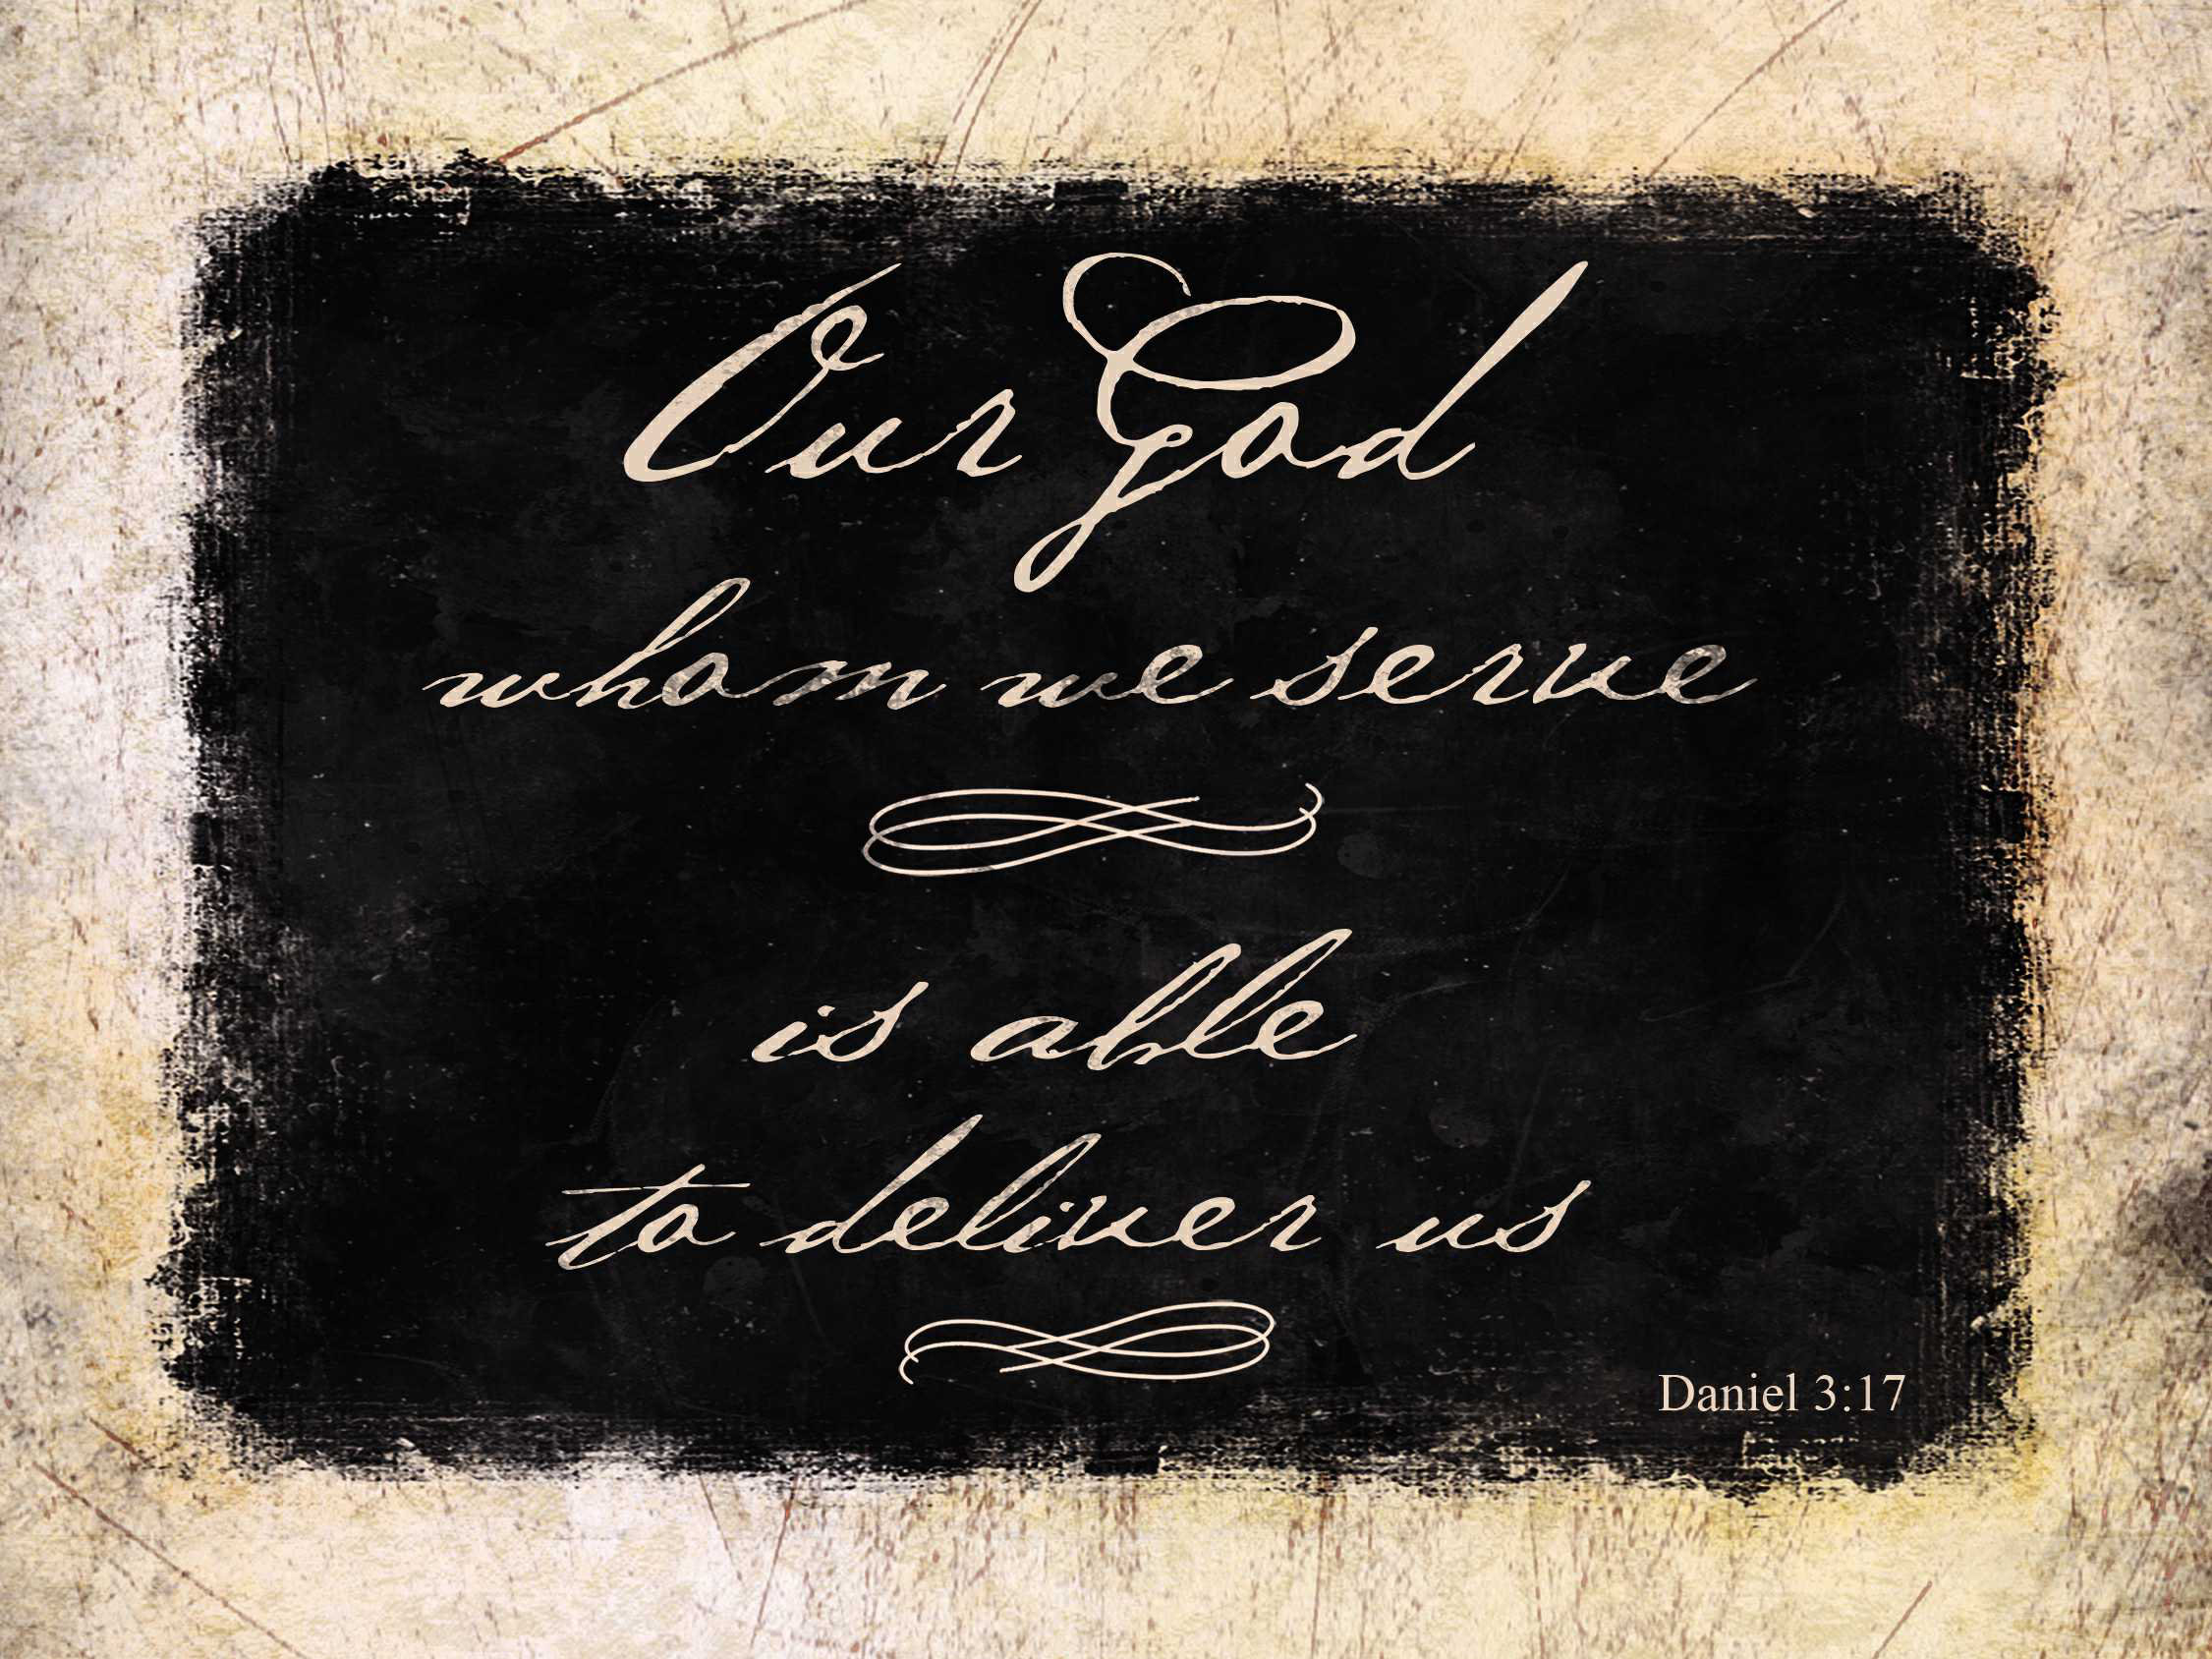 Our God
whom we serve
is able
to deliver us
Daniel 3:17